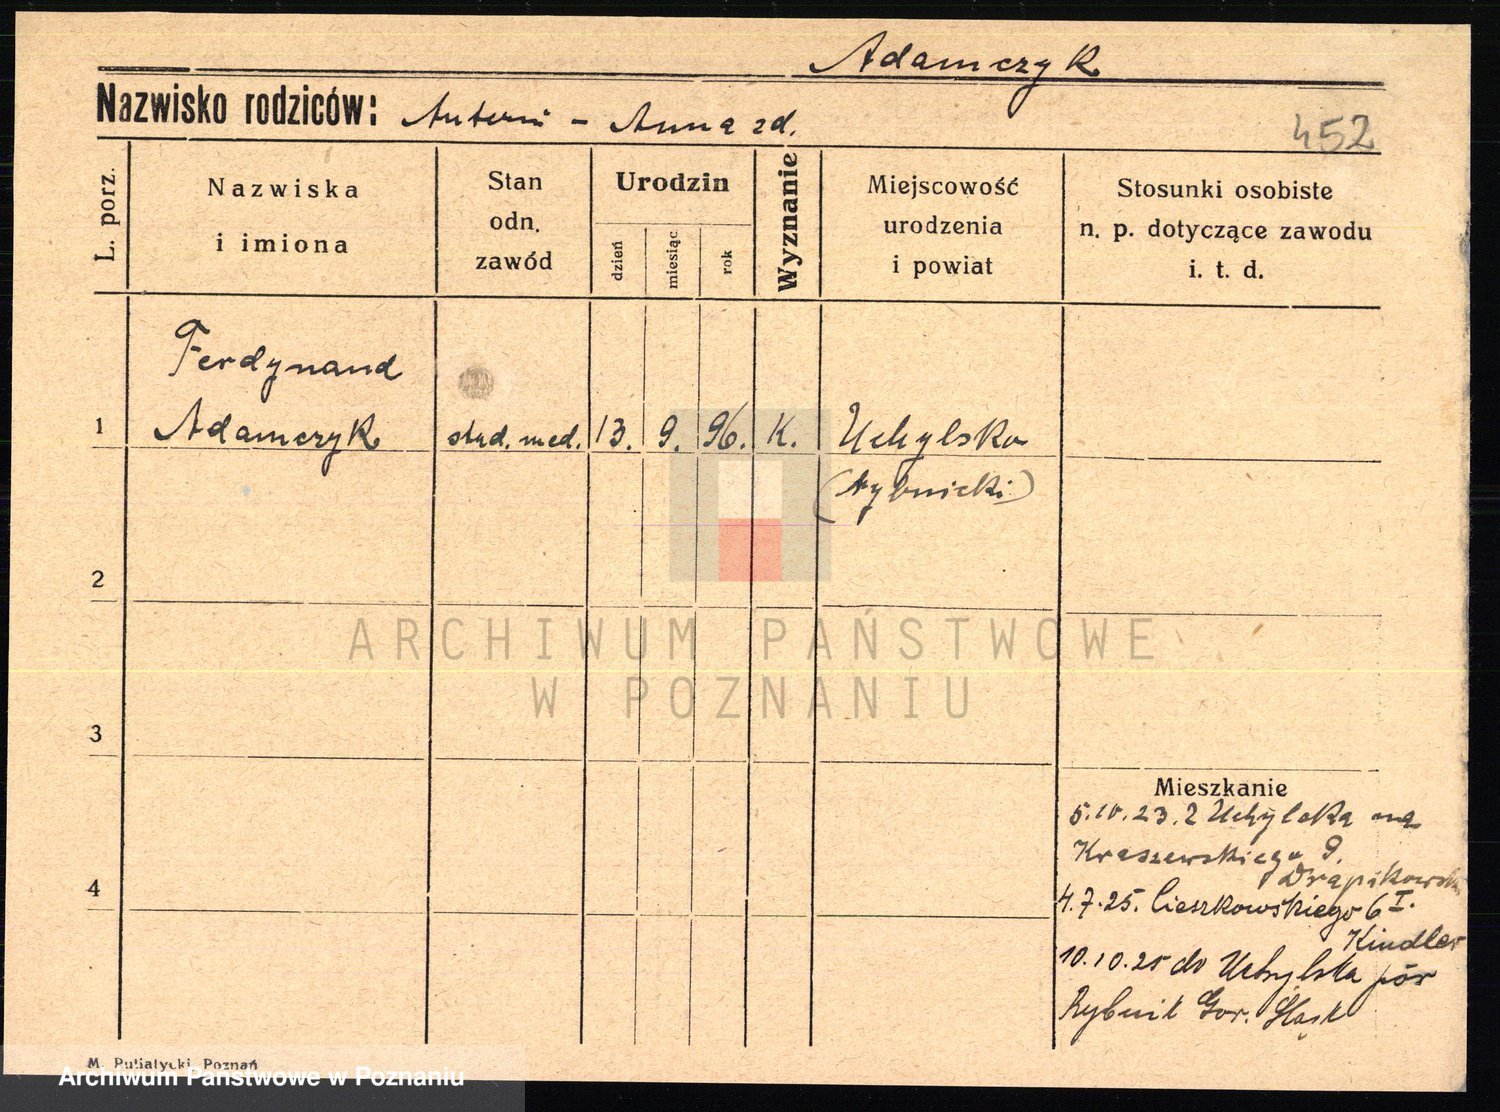 Adamczyk
Nazwisko rodziców: Antoni - Anna zd.
452
L. porz.
Nazwiska
i imiona
Stan
odn.
zawód
Urodzin
dzień
miesiąc
rok
Wyznanie
Miejscowość
urodzenia
i powiat
Stosunki osobiste
n. p. dotyczące zawodu
i. t. d.
Ferdynand
1 Adamczyk stud. med. 13. 9. 96. K. Uchylsko
(rybnicki)
2
ARCHIWUM PAŃSTWOWE
W POZNANIU
3
Mieszkanie
5.10.23. z Uchylska na
Kraszewskiego 9.
Drapikowska
4
4.7.25. Cieszkowskiego 6 I.
Kindler
10.10.25 do Uchylska pow
Rybnik Gor. Śląsk
M. Putiatycki, Poznań
Archiwum Państwowe w Poznaniu